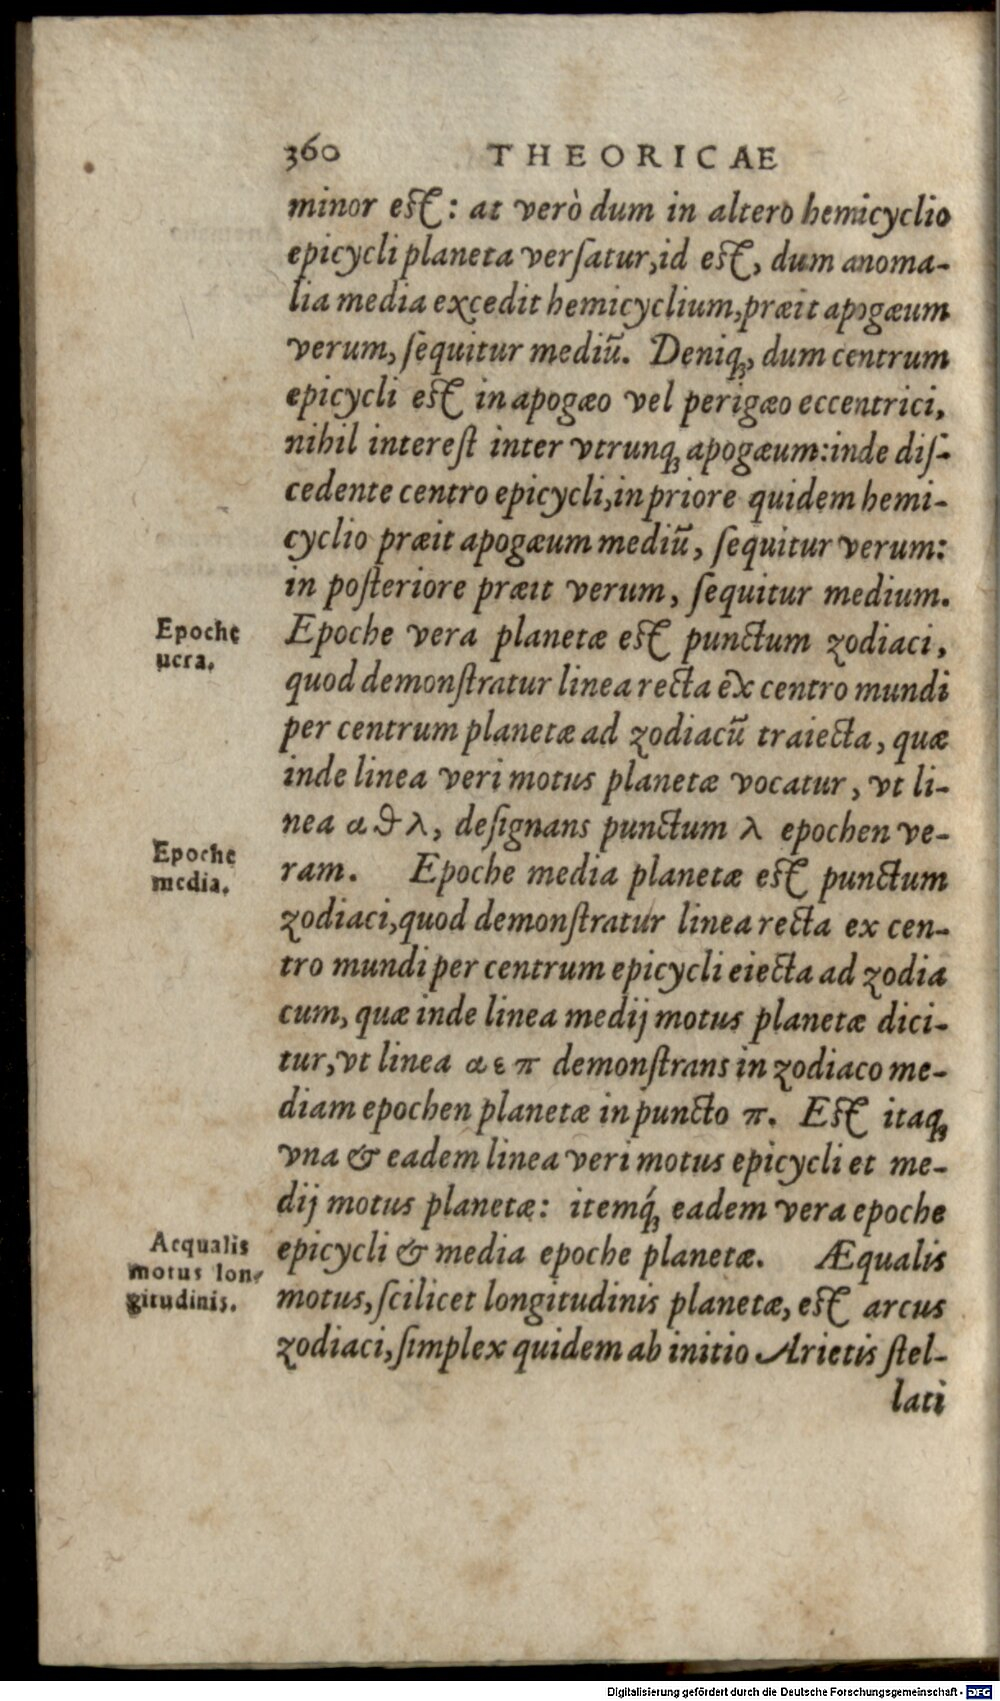 360 THEORICAE
minor est: at verò dum in altero hemicyclio
epicycli planeta versatur, id est, dum anoma-
lia media excedit hemicyclium, præit apogæum
verum, sequitur mediũ. Deniq́, dum centrum
epicycli est in apogæo vel perigæo eccentrici,
nihil interest inter vtrunq; apogæum: inde dis-
cedente centro epicycli, in priore quidem hemi-
cyclio præit apogæum mediũ, sequitur verum:
in posteriore præit verum, sequitur medium.
Epoche
uera.
Epoche vera planetæ est punctum zodiaci,
quod demonstratur linea recta ex centro mundi
per centrum planetæ ad zodiacũ traiecta, quæ
inde linea veri motus planetæ vocatur, vt li-
nea α ϑ λ, designans punctum λ epochen ve-
Epoche
media.
ram. Epoche media planetæ est punctum
zodiaci, quod demonstratur linea recta ex cen-
tro mundi per centrum epicycli eiecta ad zodia
cum, quæ inde linea medij motus planetæ dici-
tur, vt linea α ε π demonstrans in zodiaco me-
diam epochen planetæ in puncto π. Est itaq;
vna & eadem linea veri motus epicycli et me-
dij motus planetæ: itemq́; eadem vera epoche
Aequalis
motus lon-
gitudinis.
epicycli & media epoche planetæ. Æqualis
motus, scilicet longitudinis planetæ, est arcus
zodiaci, simplex quidem ab initio Arietis stel-
lati
Digitalisierung gefördert durch die Deutsche Forschungsgemeinschaft - DFG